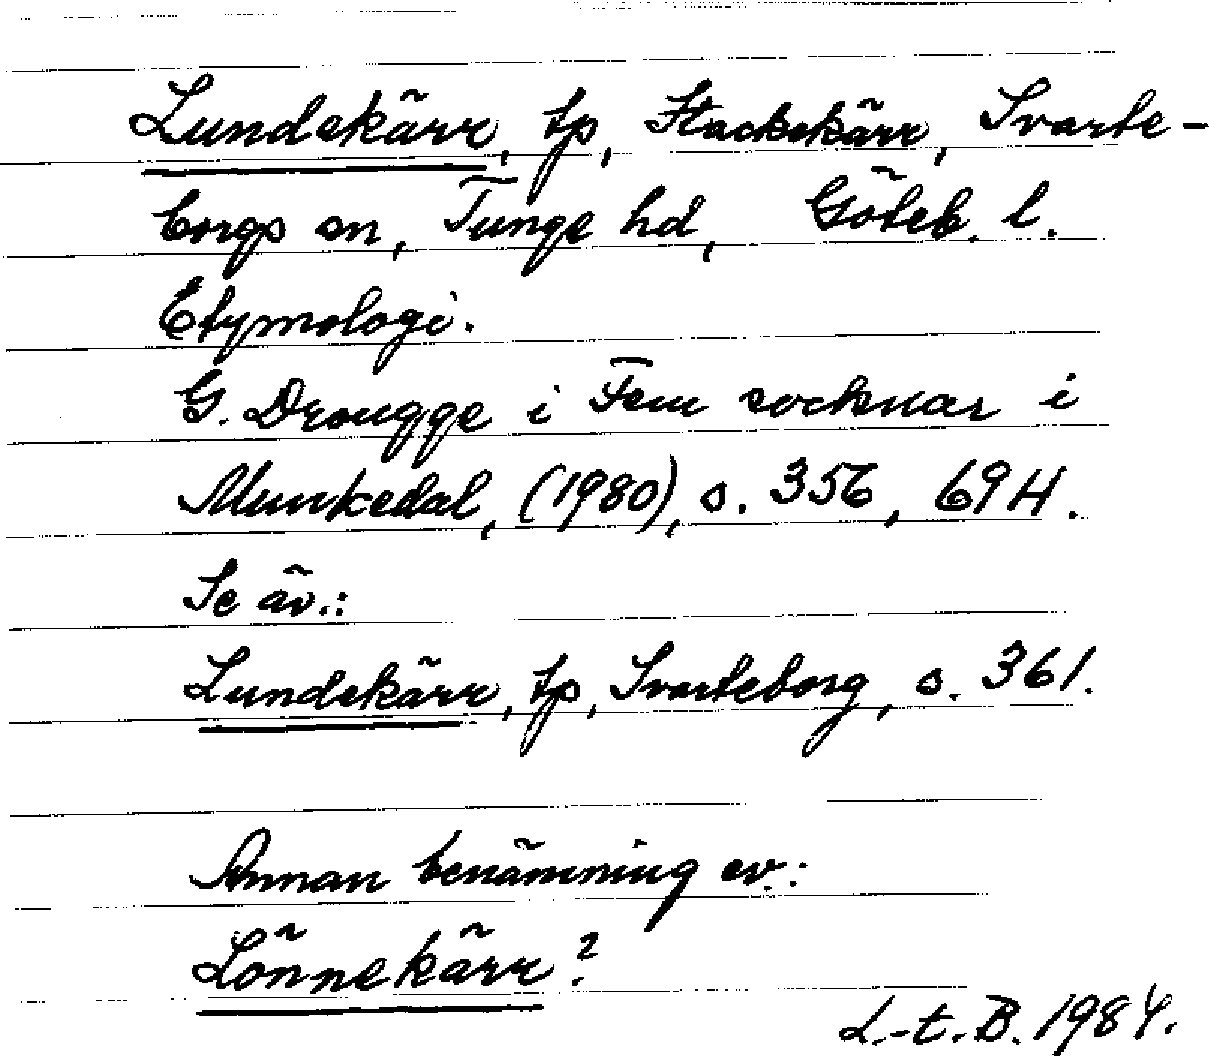 Lundekärr, tp, Stackekärr, Svarte-
borgs sn, Tunge hd, Göteb. l.
Etymologi.
G. Drougge i Fem socknar i
Munkedal, (1980), s. 356, 694.
Se äv.:
Lundekärr, tp, Svarteborg, s. 361.
Annan benämning ev.:
Lönnekärr?
L.-t. B. 1984.